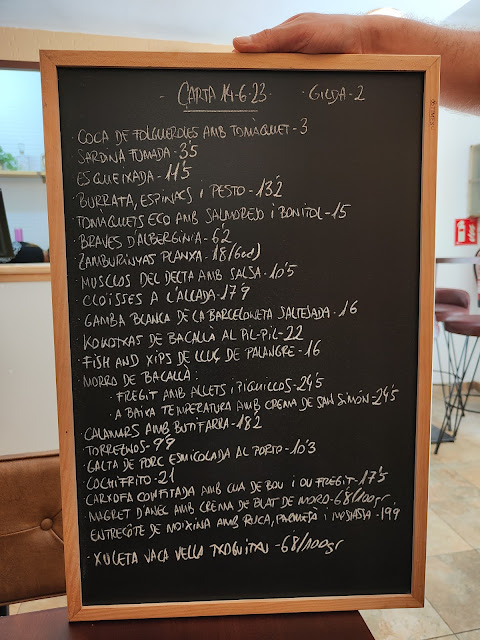 - CARTA 14-6-23 -
· GILDA - 2
· COCA DE FOLGUEROLES AMB TOMÀQUET - 3
· SARDINA FUMADA - 3'5
· ESQUEIXADA - 11'5
· BURRATA, ESPINACS i PESTO - 13'2
· TOMÀQUETS ECO AMB SALMOREJO i BONITOL - 15
· BRAVES D'ALBERGÍNIA - 6'2
· ZAMBURINYAS PLANXA - 18 (6ud)
· MUSCLOS DEL DELTA AMB SALSA - 10'5
· CLOÏSSES A L'ALLADA - 17'9
· GAMBA BLANCA DE LA BARCELONETA SALTEJADA - 16
· KOKOTXAS DE BACALLÀ AL PIL-PIL - 22
· FISH AND XIPS DE LLUÇ DE PALANGRE - 16
· MORRO DE BACALLÀ:
· FREGIT AMB ALLETS i PIQUILLOS - 24'5
· A BAIXA TEMPERATURA AMB CREMA DE SAN SIMÓN - 24'5
· CALAMARS AMB BUTIFARRA - 18'2
· TORREZNOS - 9'9
· GALTA DE PORC ESMICOLADA AL PORTO - 10'3
· COCHIFRITO - 21
· CARXOFA CONFITADA AMB CUA DE BOU i OU FREGIT - 17'5
· MAGRET D'ÀNEC AMB CREMA DE BLAT DE MORO - 6'8/100gr
· ENTRECÔTE DE MOIXINA AMB RUCA, PARMESÀ i MOSTASSA - 19'9
· XULETA VACA VELLA TXOGITXU - 6'8/100gr